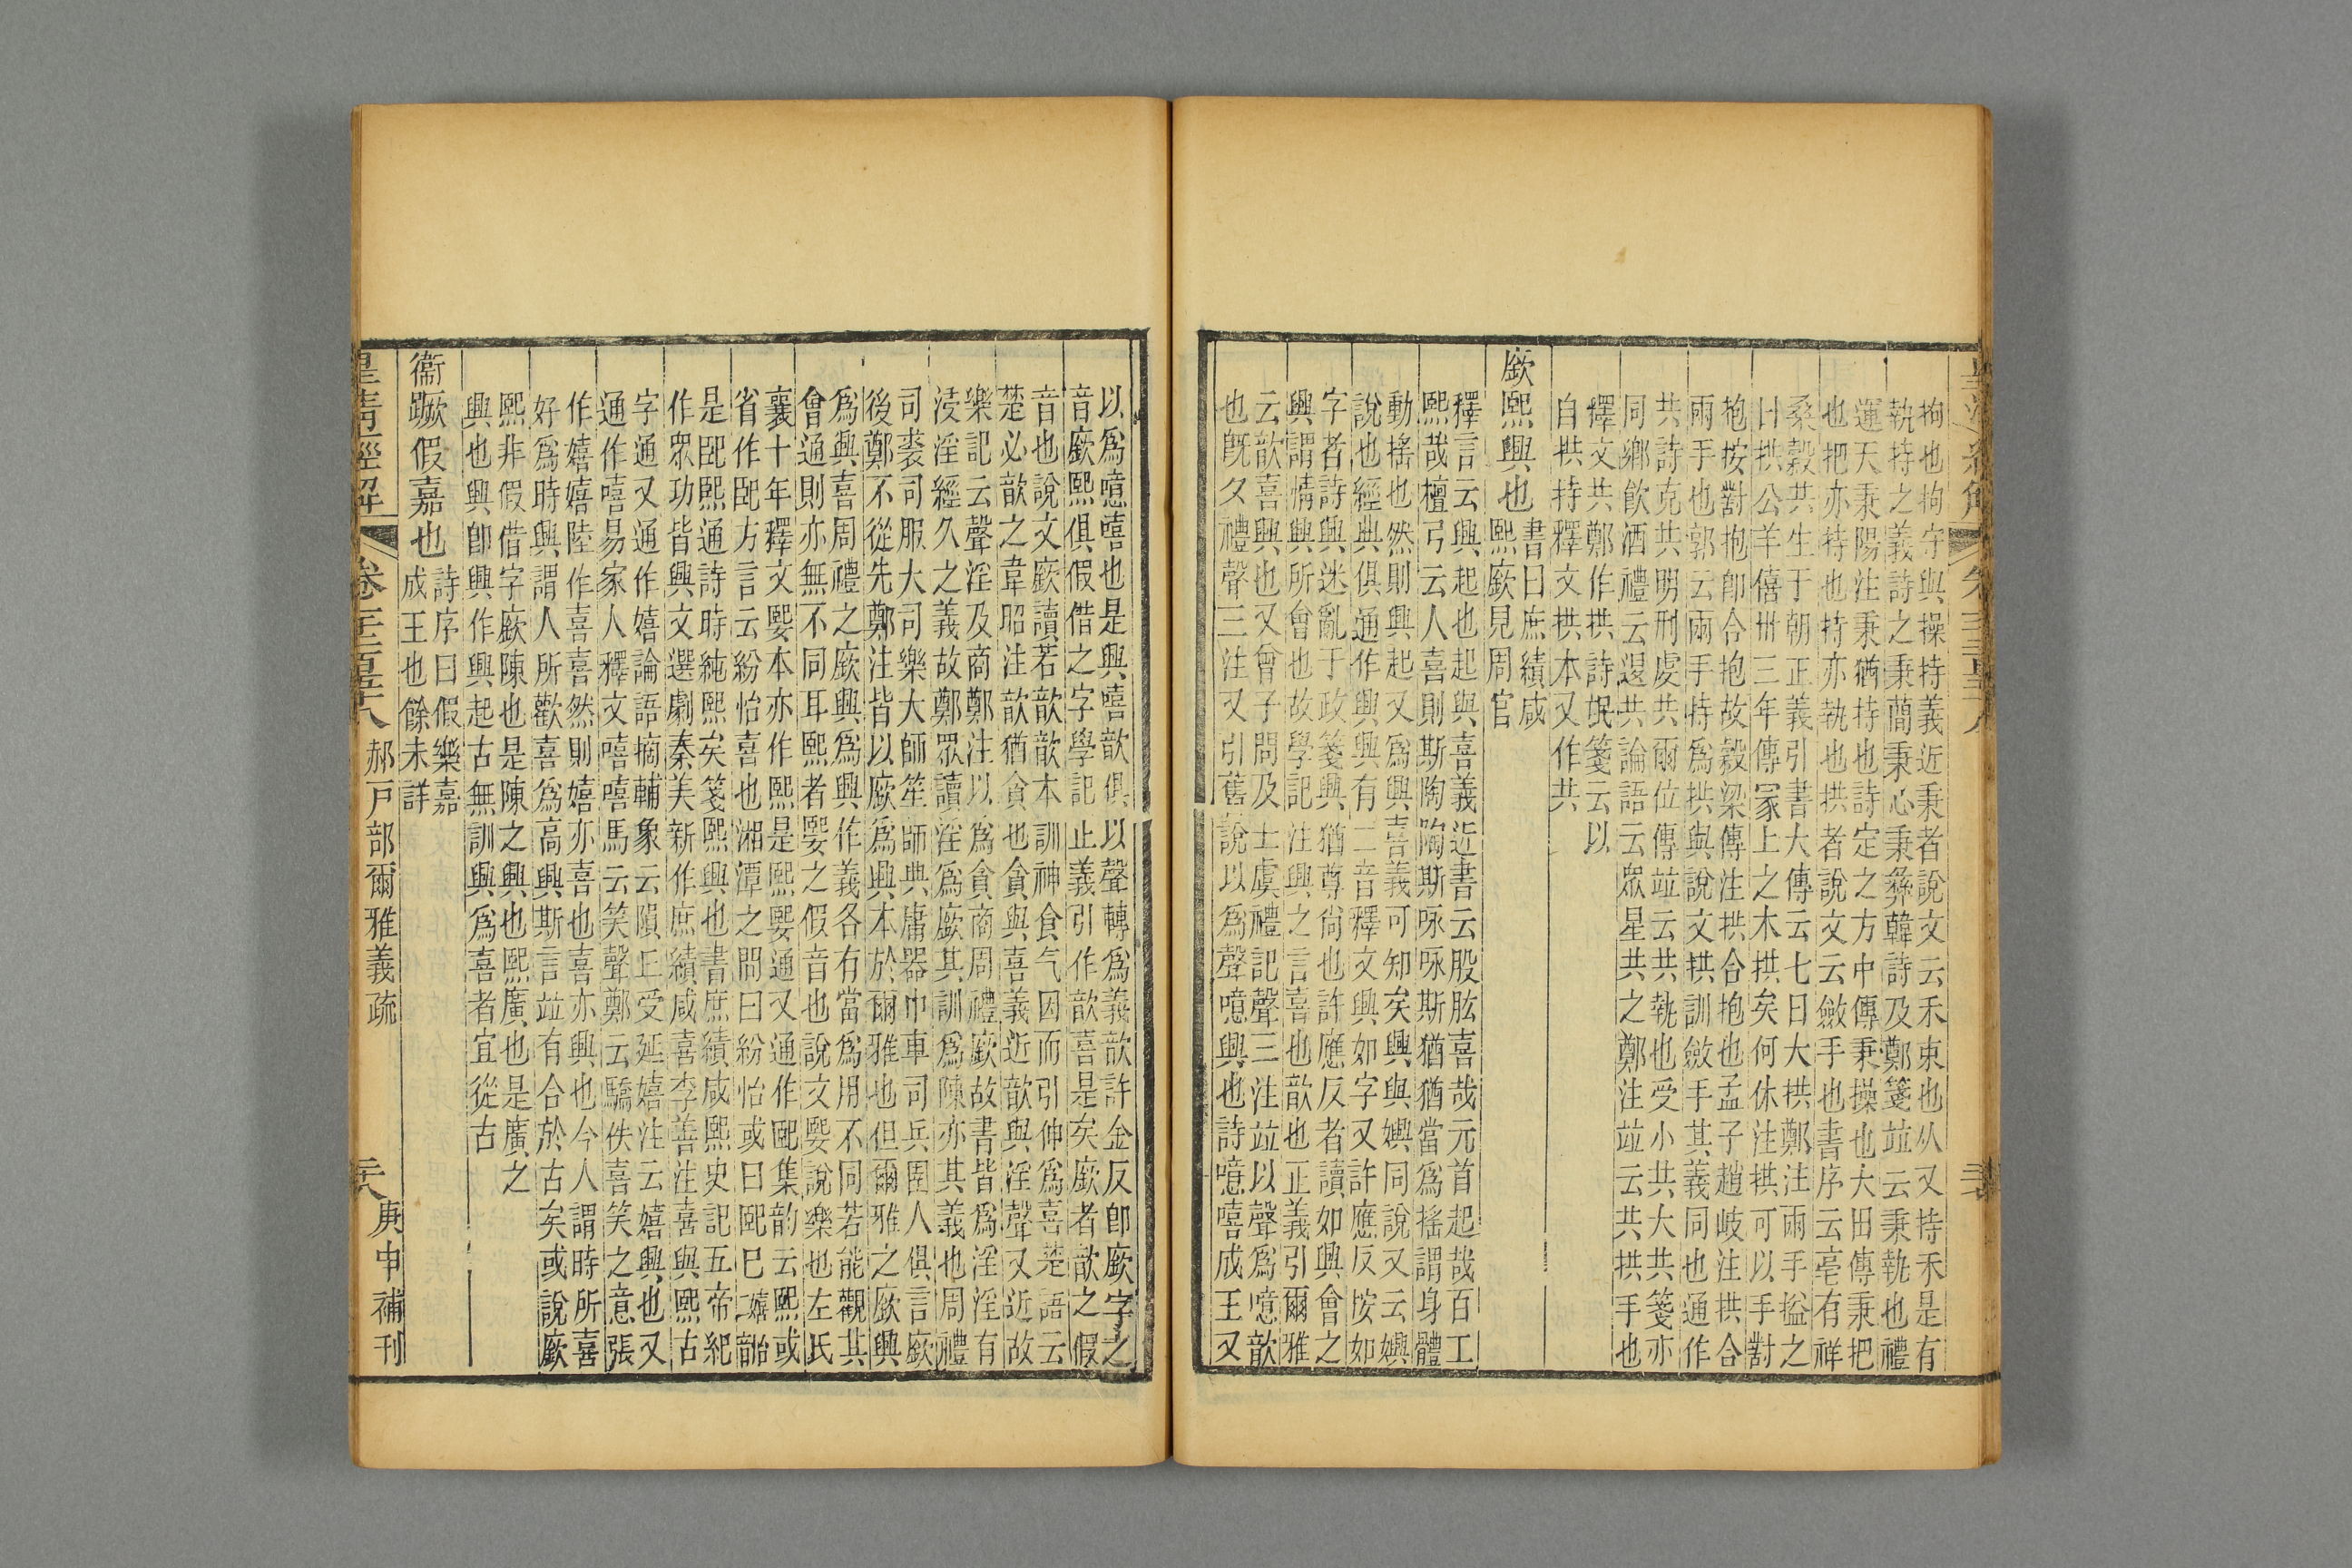 拘也拘守與操持義近秉者說文云禾束也从又持禾是有
執持之義詩之秉蕑秉心秉彝韓詩及鄭箋竝云秉執也禮
運天秉陽注秉猶持也詩定之方中傳秉操也大田傳秉把
也把亦持也持亦執也拱者說文云斂手也書序云亳有祥
桑穀共生于朝正義引書大傳云七日大拱鄭注兩手搤之
曰拱公羊僖卅三年傳冢上之木拱矣何休注拱可以手對
抱按對抱卽合抱故穀梁傳注拱合抱也孟子趙岐注拱合
兩手也郭云兩手持爲拱與說文拱訓斂手其義同也通作
共詩克共明刑虔共爾位傳竝云共執也受小共大共箋亦
同鄉飲酒禮云退共論語云眾星共之鄭注竝云共拱手也
釋文共鄭作拱詩氓箋云以
自拱持釋文拱本又作共
廞熙興也
書曰庶績咸
熙廞見周官
釋言云興起也起與喜義近書云股肱喜哉元首起哉百工
熙哉檀弓云人喜則斯陶陶斯咏咏斯猶猶當爲搖謂身體
動搖也然則興起又爲興喜義可知矣興與嬹同說又云嬹
說也經典俱通作興興有二音釋文興如字又許應反按如
字者詩興迷亂于政箋興猶尊尚也許應反者讀如興會之
興謂情興所會也故學記注興之言喜也歆也正義引爾雅
云歆喜興也又曾子問及士虞禮記聲三注竝以聲爲噫歆
也旣夕禮聲三注又引舊說以爲聲噫興也詩噫嘻成王又
以爲噫嘻也是興嘻歆俱以聲轉爲義歆許金反卽廞字之
音廞熙俱假借之字學記正義引作歆喜是矣廞者歆之假
音也說文廞讀若歆歆本訓神食气因而引伸爲喜楚語云
楚必歆之韋昭注歆猶貪也貪與喜義近歆與淫聲又近故
樂記云聲淫及商鄭注以爲貪商周禮廞故書皆爲淫淫有
浸淫經久之義故鄭眾讀淫爲廞其訓爲陳亦其義也周禮
司裘司服大司樂大師笙師典庸器巾車司兵圉人俱言廞
後鄭不從先鄭注皆以廞爲興本於爾雅也但爾雅之廞興
爲興喜周禮之廞興爲興作義各有當爲用不同若能觀其
會通則亦無不同耳熙者媐之假音也說文媐說樂也左氏
襄十年釋文媐本亦作熙是熙媐通又通作巸集韵云熙或
省作巸方言云紛怡喜也湘潭之間曰紛怡或曰巸巳嬉怡二音
是巸熙通詩時純熙矣箋熙興也書庶績咸熙史記五帝紀
作眾功皆興文選劇秦美新作庶績咸喜李善注喜與熙古
字通又通作嬉論語摘輔象云隕丘受延嬉注云嬉興也又
通作嘻易家人釋文嘻嘻馬云笑聲鄭云驕佚喜笑之意張
作嬉嬉陸作喜喜然則嬉亦喜也喜亦興也今人謂時所喜
好爲時興謂人所歡喜爲高興斯言竝有合於古矣或說廞
熙非假借字廞陳也是陳之興也熙廣也是廣之
興也興卽興作興起古無訓興爲喜者宜從古
衞蹶假嘉也
詩序曰假樂嘉
成王也餘未詳
皇清經解 卷千二百五十八 郝戶部爾雅義疏 庚申補刊